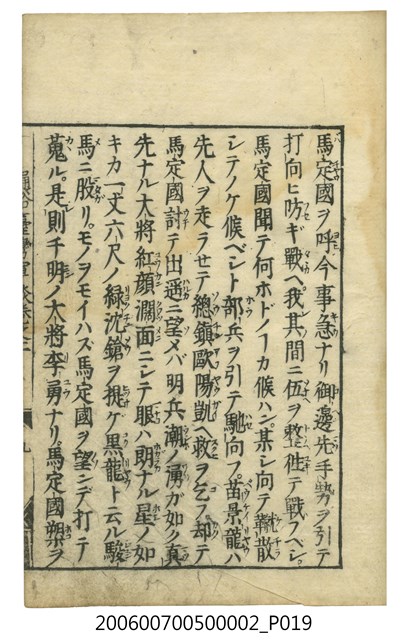 馬定國ヲ呼今事急ナリ御邊先手勢ヲ引テ
打向ヒ防ギ戰ヘ我其間ニ伍ヲ整徃テ戰フベシ
馬定國聞テ何ホドノ一カ候ハン某シ向テ散
シテノケ候ベシト部兵ヲ引テ馳向フ苗景龍ハ
先人ヲ走ラセテ總鎮歐陽凱ヘ救ヲ乞フ却テ
馬定國討テ出遥ニ望メバ明兵潮ノ湧ガ如ク真
先ナル大將紅顔濶面ニシテ眼ハ朗ナル星ノ如
キカ一丈六尺ノ緑沈鎗ヲ提ゲ黒龍ト云ル駿
馬ニ股リモノヲモイハズ馬定國ヲ望ンデ打テ
蒐ル是則千明ノ大將李勇ナリ馬定國槊ヲ
200600700500002_P019